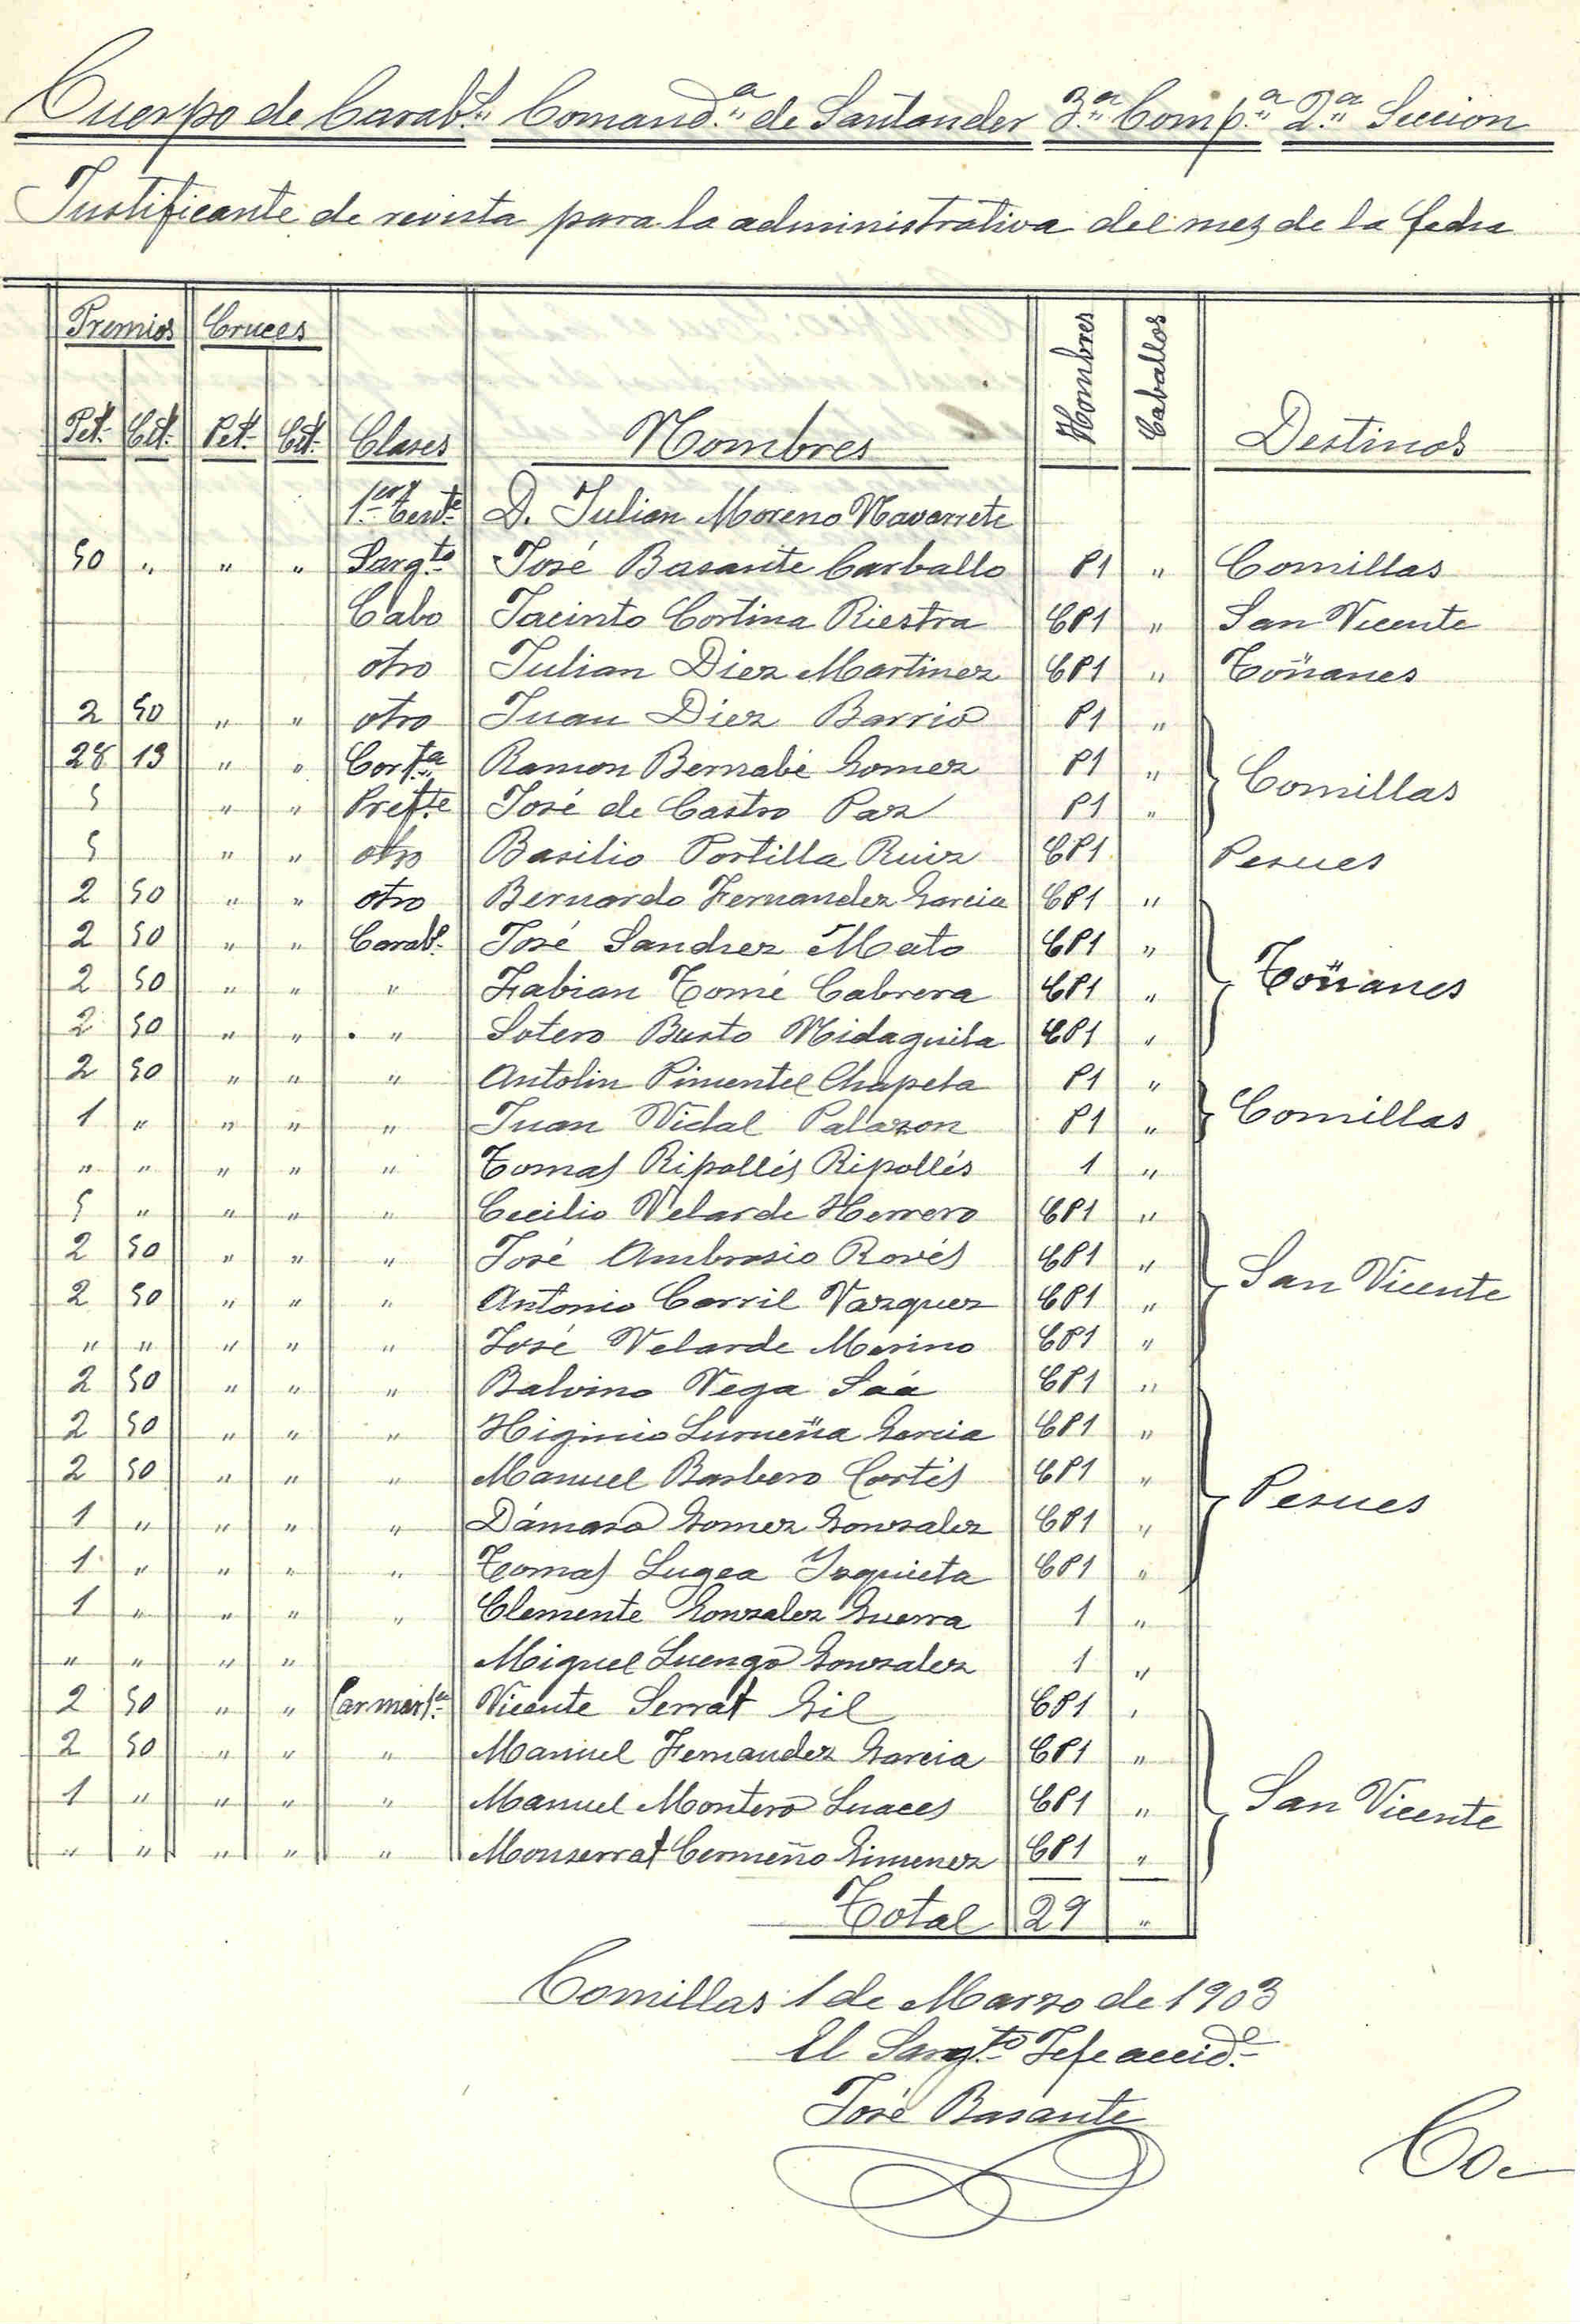 Cuerpo de Carabs. Comand.a de Santander 3.a Comp.a 2.a Seccion
Justificante de revista para la administrativa del mes de la fecha
Premios Cruces
Pet. Cet. Pet. Cet. Clases Nombres Hombres Caballos Destinos
1.er Tente. D. Julian Moreno Navarrete
50 " " " Sargto José Basante Carballo P1 " Comillas
Cabo Jacinto Cortina Riestra CP1 " San Vicente
otro Julian Diez Martinez CP1 " Toñanes
2 50 " " otro Juan Diez Barrio P1 "
28 13 " " Corta Ramon Bernabé Gomez P1 " Comillas
5 " " Prefte José de Castro Paz P1 "
5 " " otro Basilio Portilla Ruiz CP1 Pesues
2 50 " " otro Bernardo Fernandez Garcia CP1 "
2 50 " " Carab. José Sanchez Mato CP1 "
2 50 " " " Fabian Tomé Cabrera CP1 " Toñanes
2 50 " " " Sotero Busto Nidaguila CP1 "
2 50 " " " Antolin Pimentel Chapela P1 "
1 " " " " Juan Vidal Palazon P1 " Comillas
" " " " " Tomas Ripollés Ripollés 1 "
5 " " " " Cecilio Velarde Herrero CP1 "
2 50 " " " José Ambrosio Rovés CP1 "
2 50 " " " Antonio Carril Vazquez CP1 " San Vicente
" " " " " José Velarde Merino CP1 "
2 50 " " " Balvino Vega Saá CP1 "
2 50 " " " Higinio Lurueña Garcia CP1 "
2 50 " " " Manuel Barbero Cortés CP1 " Pesues
1 " " " " Dámaso Gomez Gonzalez CP1 "
1 " " " " Tomas Lugea Yzquieta CP1 "
1 " " " " Clemente Gonzalez Guerra 1 "
" " " " Miguel Luengo Gonzalez 1 "
2 50 " " Car mart. Vicente Serrat Gil CP1 "
2 50 " " " Manuel Fernandez Garcia CP1 "
1 " " " " Manuel Montero Luaces CP1 " San Vicente
" " " " " Monserrat Cermeño Gimenez CP1 "
Total 29 "
Comillas 1 de Marzo de 1903
El Sargto Jefe accide.
José Basante
Co-